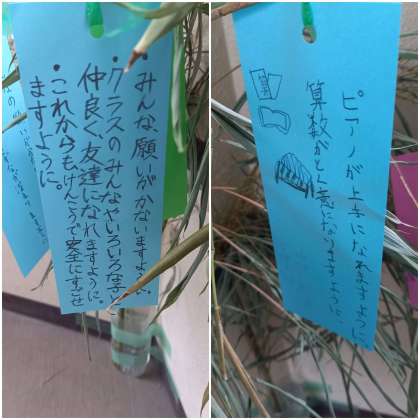 ・みんな、願いがかないますように。
・クラスのみんなやいろいろな子と
仲良く、友達になれますように。
・これからもけんこうで安全にすごせ
ますように。
ピアノが上手になれますように。
算数がとくいになりますように。
算